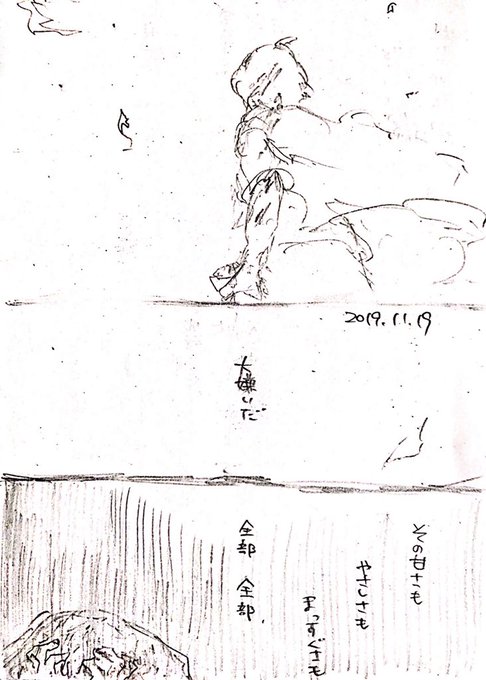 2019.11.19
大嫌いだ
その甘さも
やさしさも
まっすぐさも
全部 全部